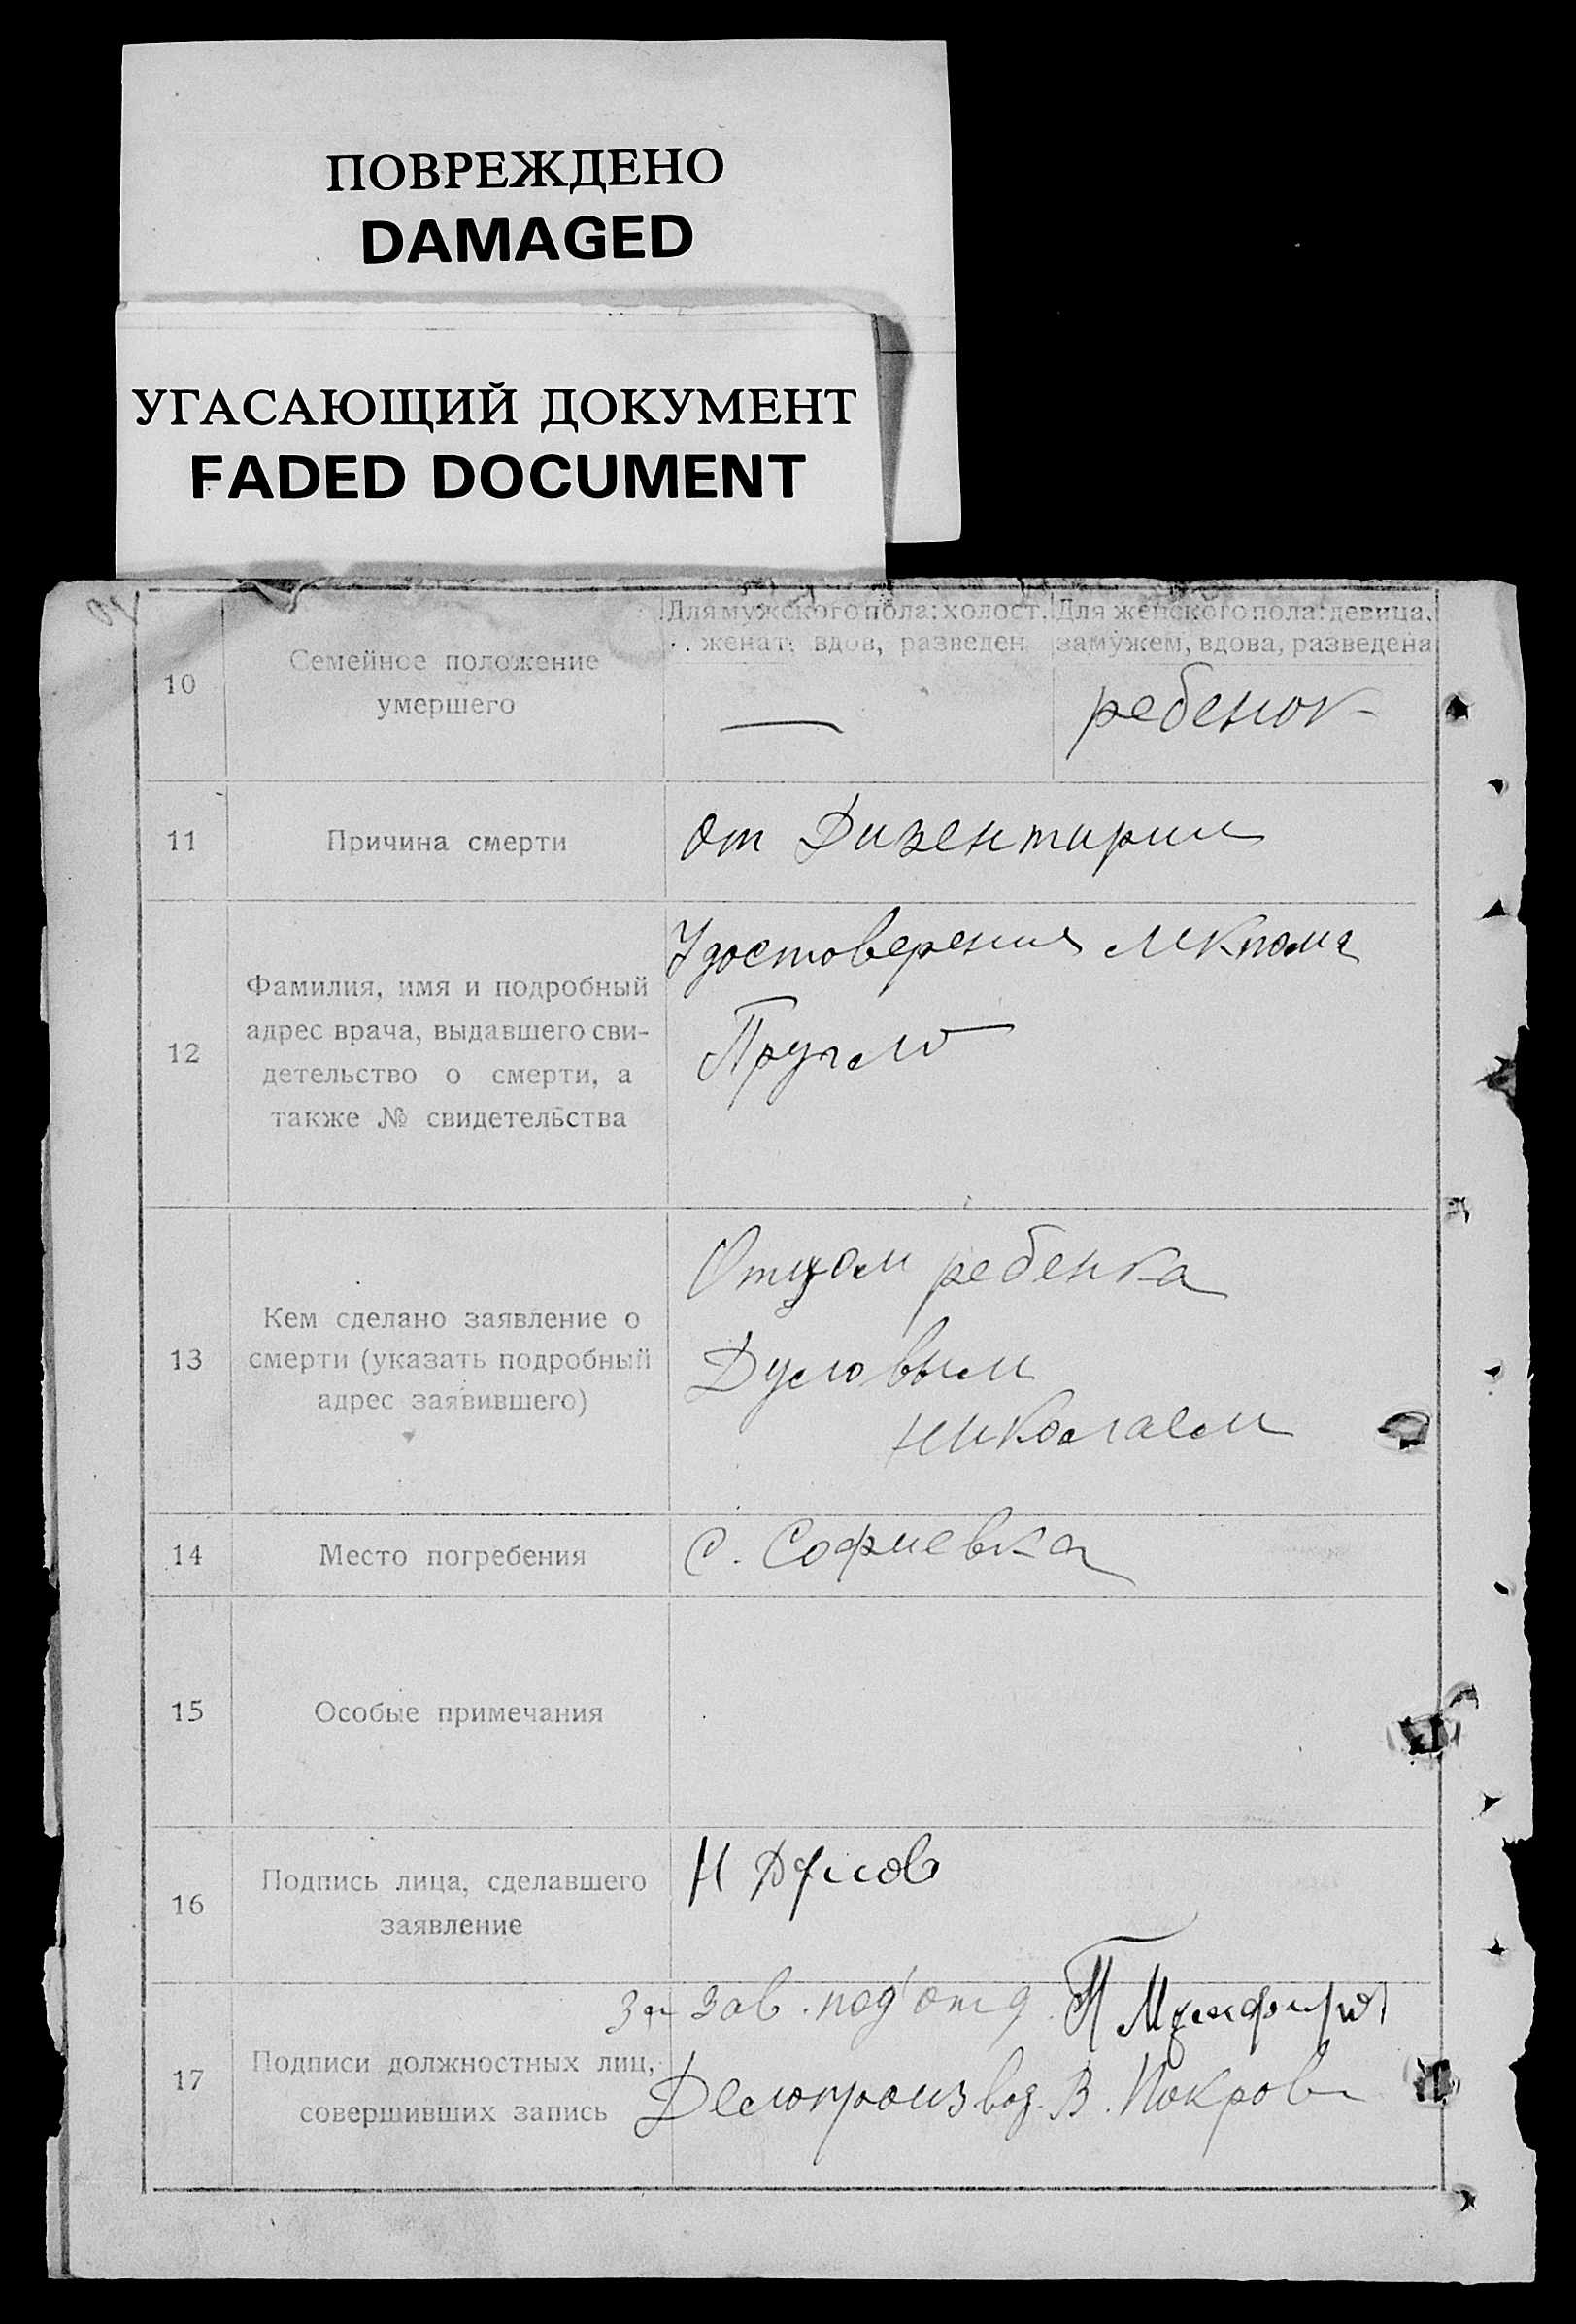 ПОВРЕЖДЕНО
DAMAGED
УГАСАЮЩИЙ ДОКУМЕНТ
FADED DOCUMENT
10
Семейное положение
умершего
Для мужского пола: холост,
женат, вдов, разведен
Для женского пола: девица,
замужем, вдова, разведена
—
ребенок
11
Причина смерти
От Дизентирии
12
Фамилия, имя и подробный
адрес врача, выдавшего сви-
детельство о смерти, а
также № свидетельства
Удостоверения лекпома
13
Кем сделано заявление о
смерти (указать подробный
адрес заявившего)
Отцом ребенка
Дусовым
николаем
14
Место погребения
с. Софиевка
15
Особые примечания
16
Подпись лица, сделавшего
заявление
Н Дусов
17
Подписи должностных лиц,
совершивших запись
За зав. под'отд.
Делопроизвод. В. Покров